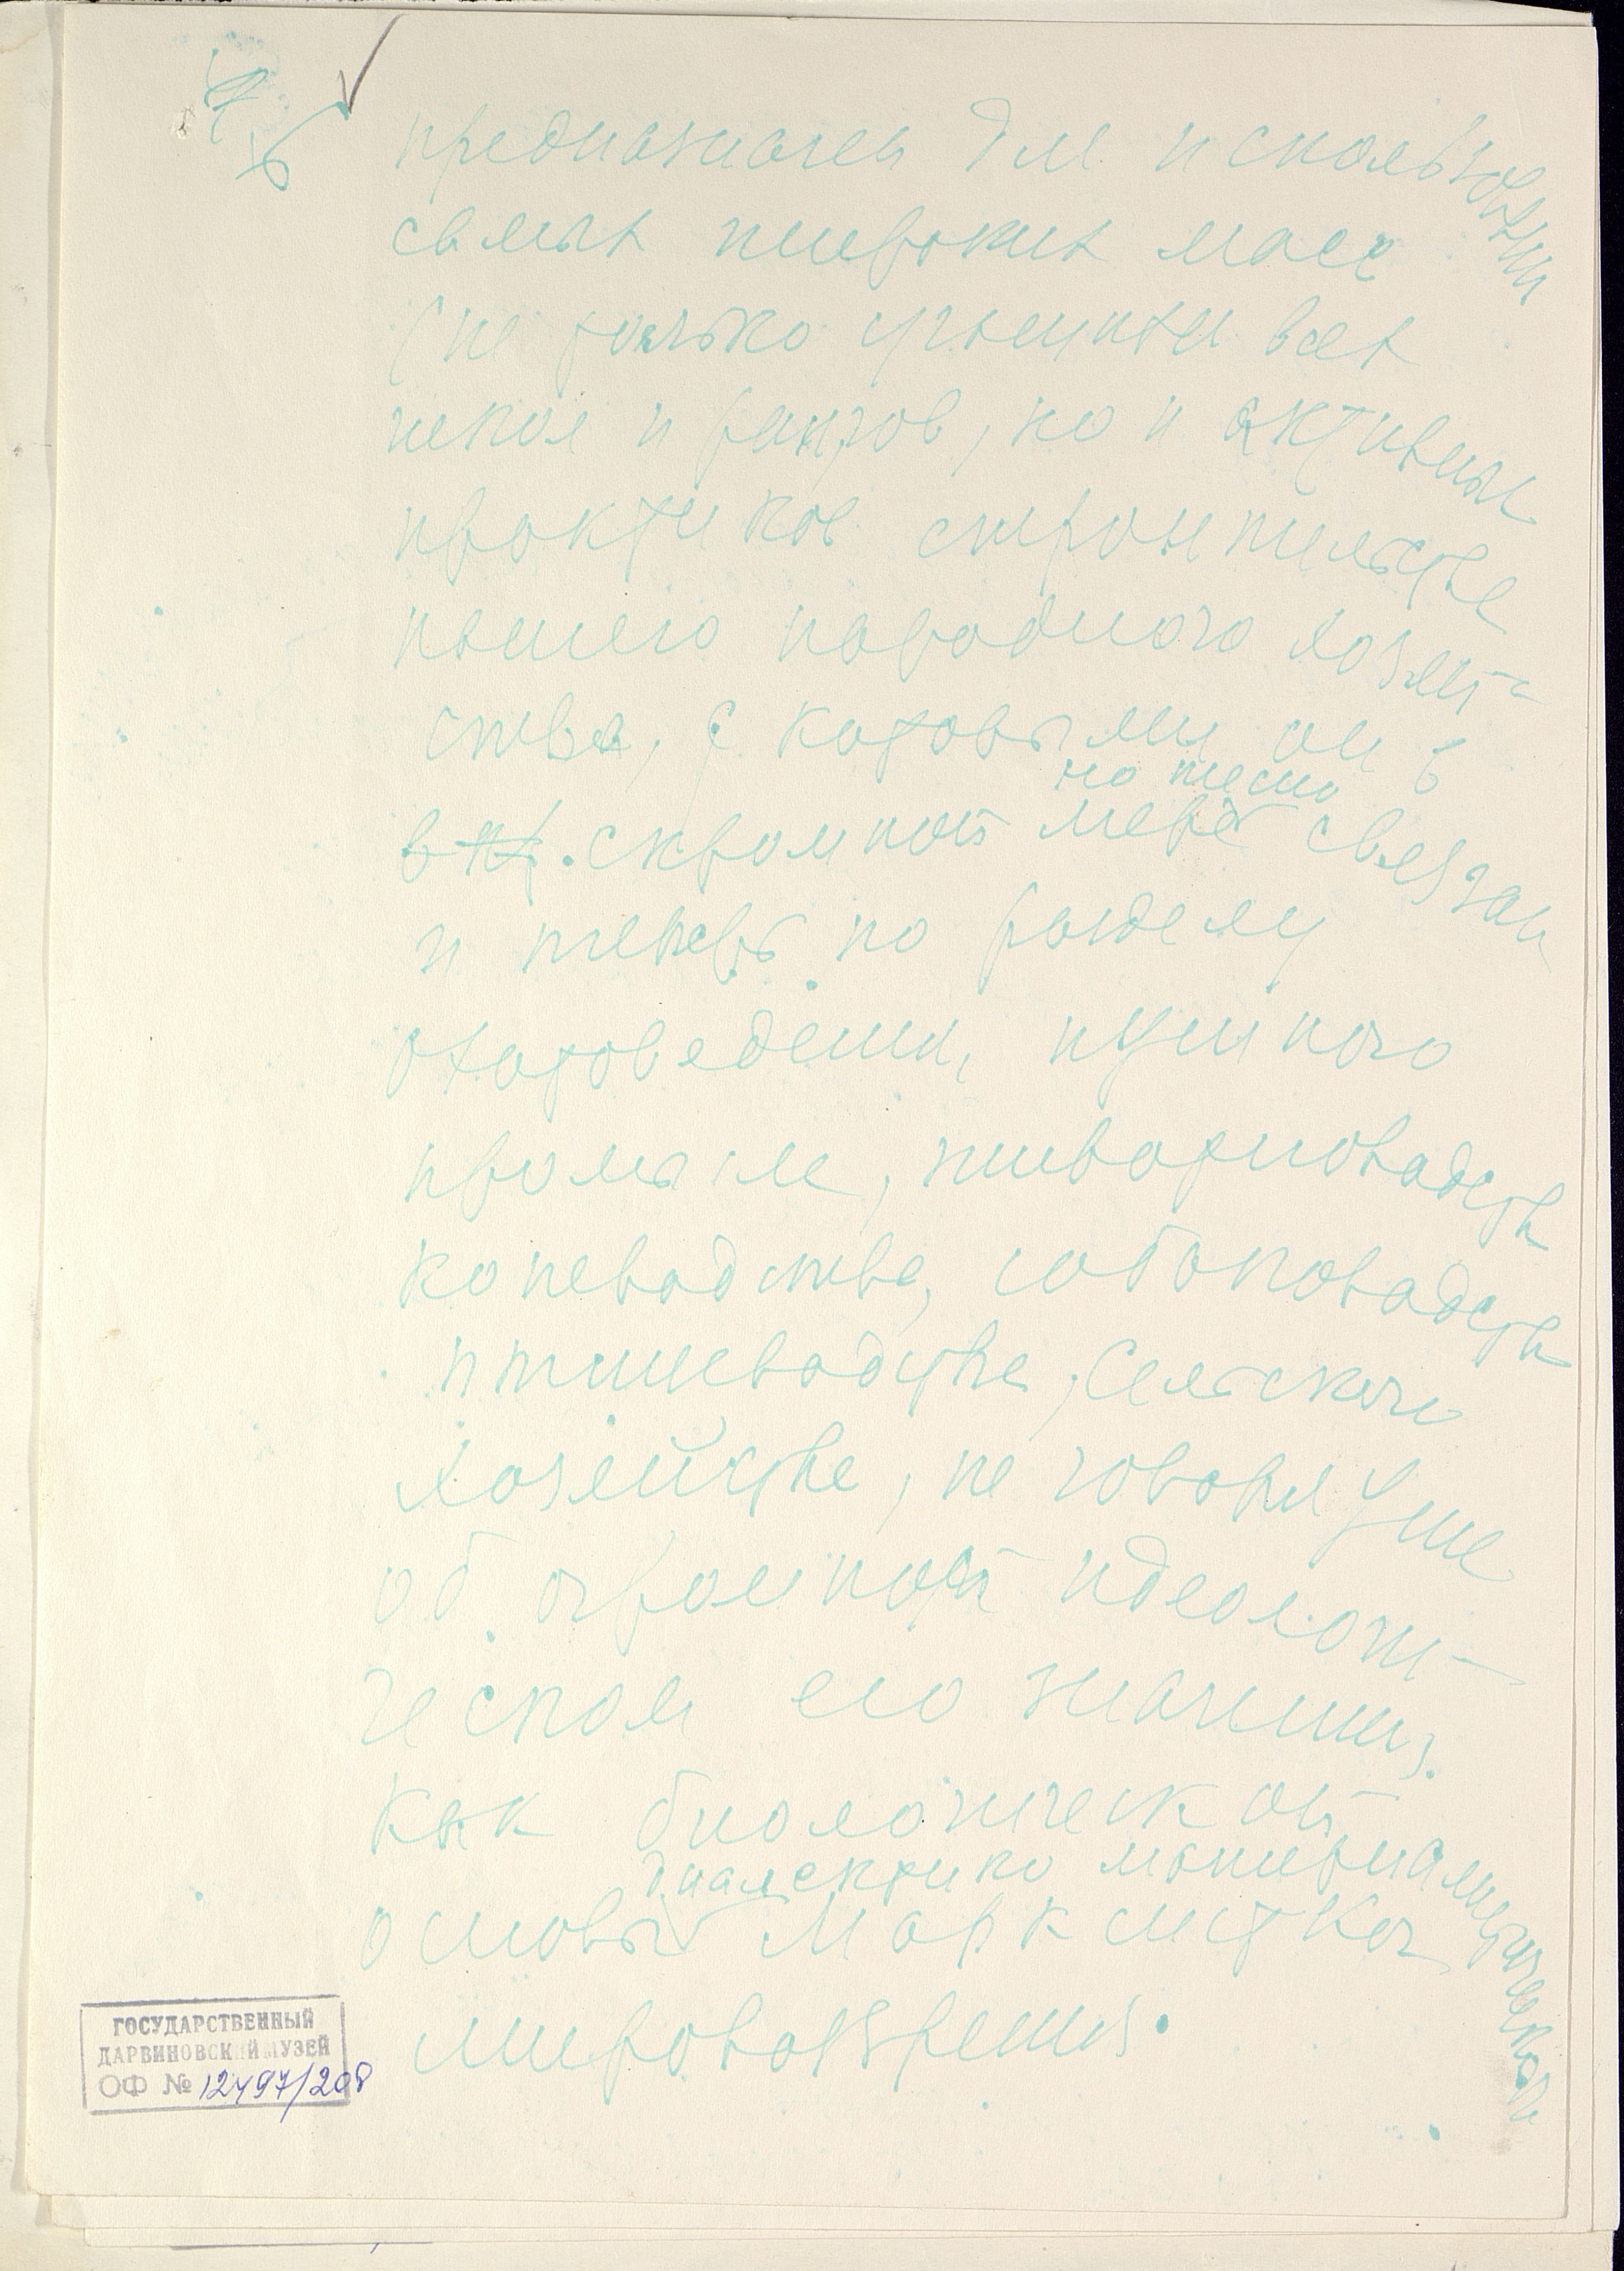 6
предназначен для использования
самых широких масс
(не только учащихся всех
школ и рангов, но и активных
практиков строительства
нашего народного хозяй-
ства, с которыми он в
но тесно
скромной мере связан
и теперь по разделу
охотоведения, пушного
промысла, животноводства
коневодства, собаководства
птицеводства, сельского
хозяйства, не говоря уже
об огромном идеологи-
ческом его значении,
как биологической
диалектико материалистической
основы марксистског
мировоззрения.
ГОСУДАРСТВЕННЫЙ
ДАРВИНОВСКИЙ МУЗЕЙ
ОФ № 12497/208